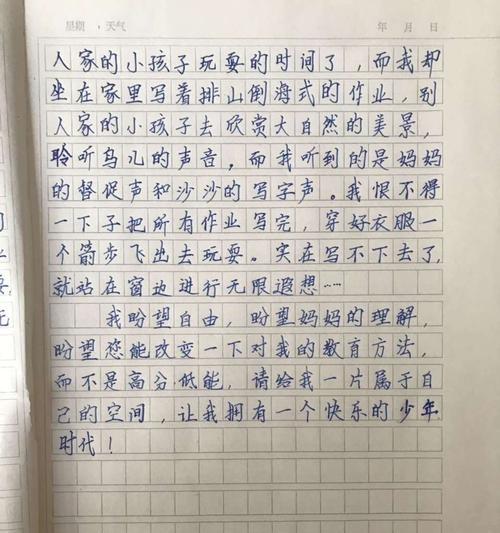 星期 ， 天气
年 月 日
人家的小孩子玩耍的时间了，而我却
坐在家里写着排山倒海式的作业，别
人家的小孩子去欣赏大自然的美景，
聆听鸟儿的声音，而我听到的是妈妈
的督促声和沙沙的写字声。我恨不得
一下子把所有作业写完，穿好衣服一
个箭步飞出去玩耍。实在写不下去了，
就站在窗边进行无限遐想……
我盼望自由，盼望妈妈的理解，
盼望您能改变一下对我的教育方法，
而不是高分低能，请给我一片属于自
己的空间，让我拥有一个快乐的少年
时代！